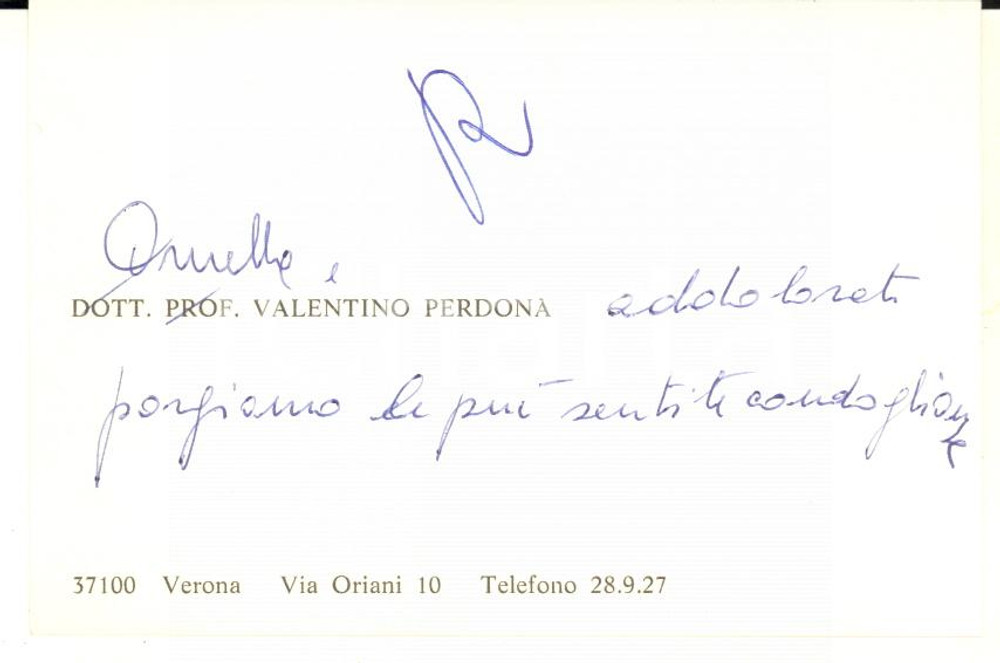 R
Ornella e
DOTT. PROF. VALENTINO PERDONÀ addolorati
porgiamo le più sentite condoglianze
37100 Verona Via Oriani 10 Telefono 28.9.27